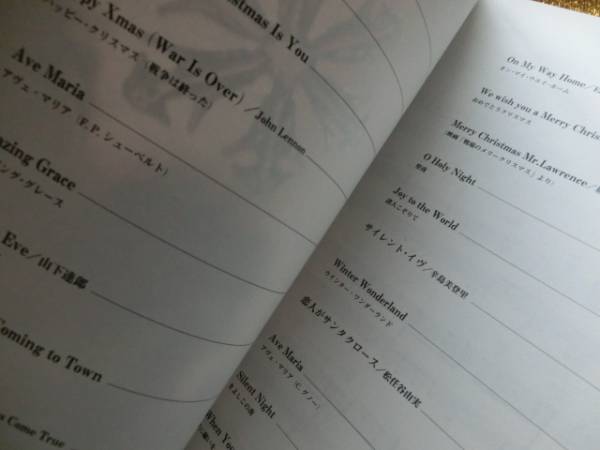 ristmas Is You
py Xmas (War Is Over)／John Lennon
ッピー・クリスマス（戦争は終った）
Ave Maria
アヴェ・マリア（F.P.シューベルト）
azing Grace
ング・グレース
Eve／山下達郎
Coming to Town
s Came True
On My Way Home／
オン・マイ・ウェイ・ホーム
We wish you a Merry Chris
おめでとうクリスマス
Merry Christmas Mr.Lawrence／
（映画「戦場のメリークリスマス」より）
O Holy Night
Joy to the World
諸人こぞりて
サイレント・イヴ／辛島美登里
Winter Wonderland
ウィンター・ワンダーランド
恋人がサンタクロース／松任谷由実
Ave Maria
アヴェ・マリア（C.グノー）
Silent Night
きよしこの夜
When You